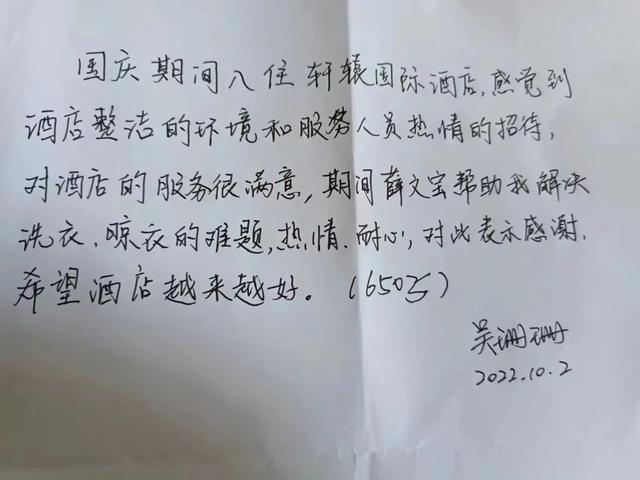 国庆期间入住轩辕国际酒店,感觉到
酒店整洁的环境和服务人员热情的招待,
对酒店的服务很满意,期间薛文宝帮助我解决
洗衣、晾衣的难题,热情、耐心,对此表示感谢.
希望酒店越来越好。(6505)
吴珊珊
2022.10.2